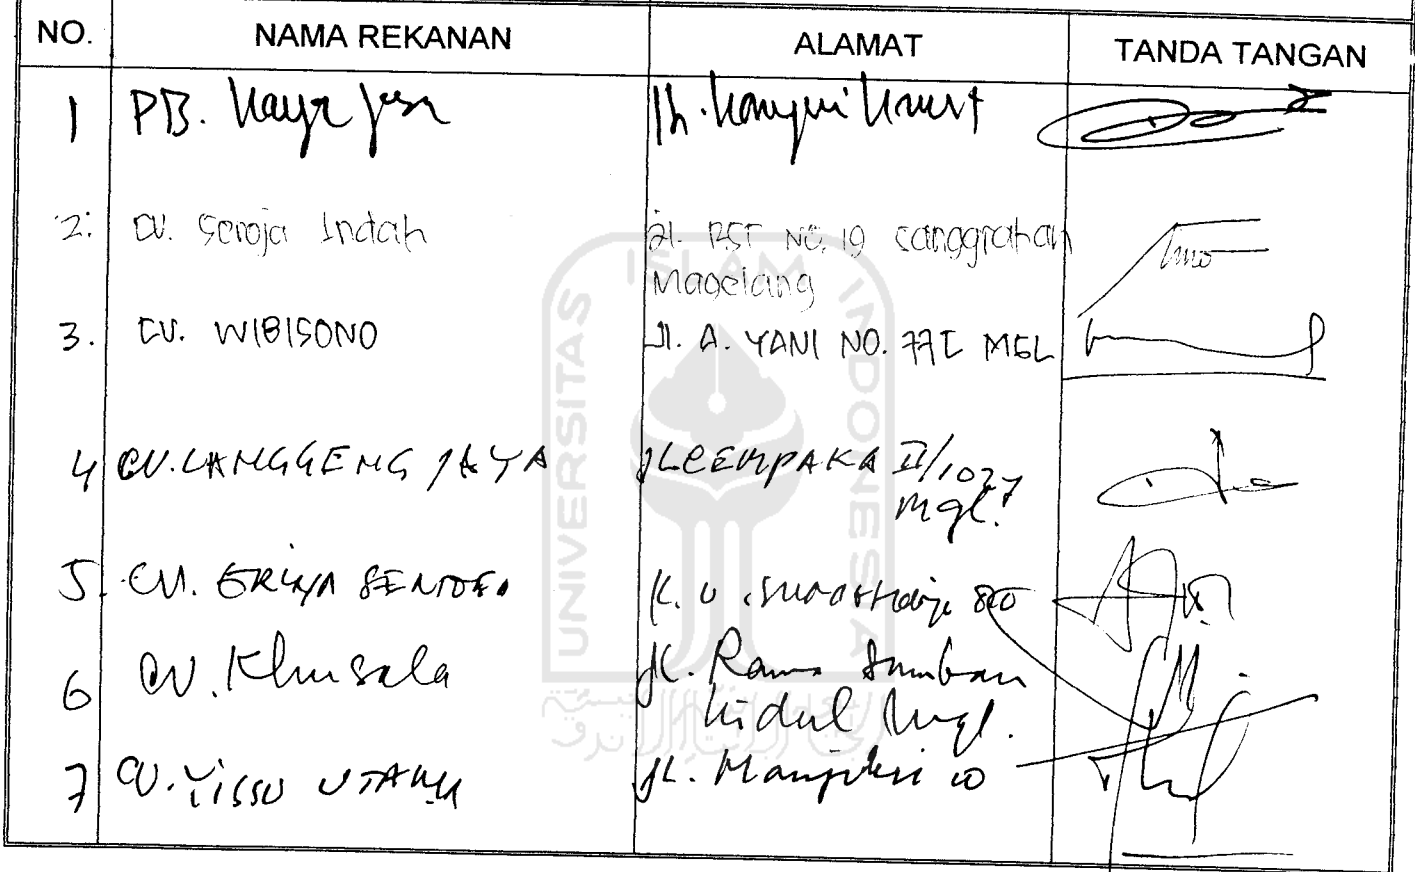 NO. NAMA REKANAN ALAMAT TANDA TANGAN
1 PB. Karya Jasa Jl.
2. CV. Seroja Indah Jl. RST NO. 19 Sanggrahan
Magelang
3. CV. WIBISONO Jl. A. YANI NO. 77C MGL
4 CV. LANGGENG JAYA JL CEMPAKA II/1027
Mgl.
5. CV. Jl. U.
6 CV. Khusala Jl. Rama Samban
Kidul Mgl.
7 CV. UTAMA JL.
UNIVERSITAS ISLAM INDONESIA